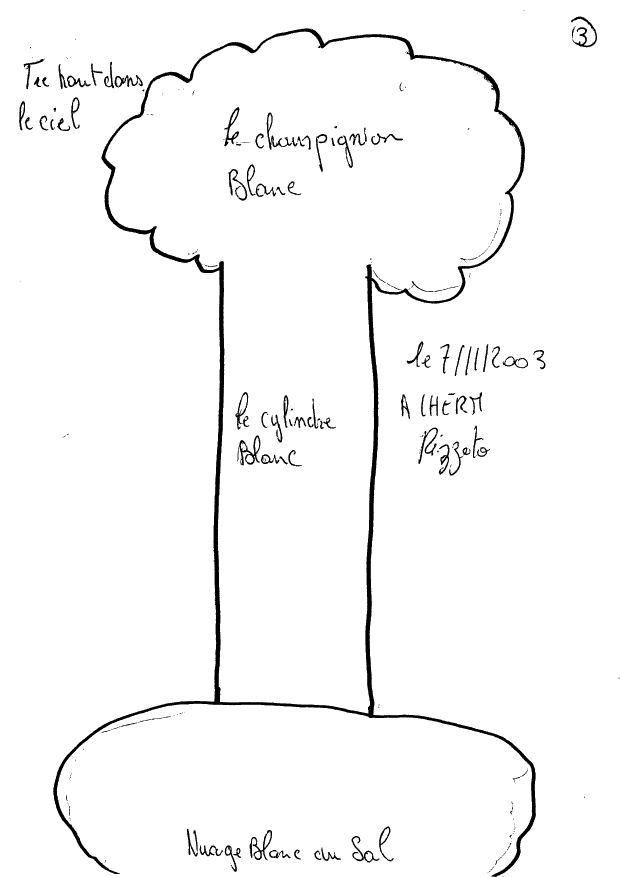 3
Tre haut dans
le ciel
le champignion
Blanc
le 7/11/2003
A LHERM
Rizzato
le cylindre
Blanc
Nuage Blanc au Sol